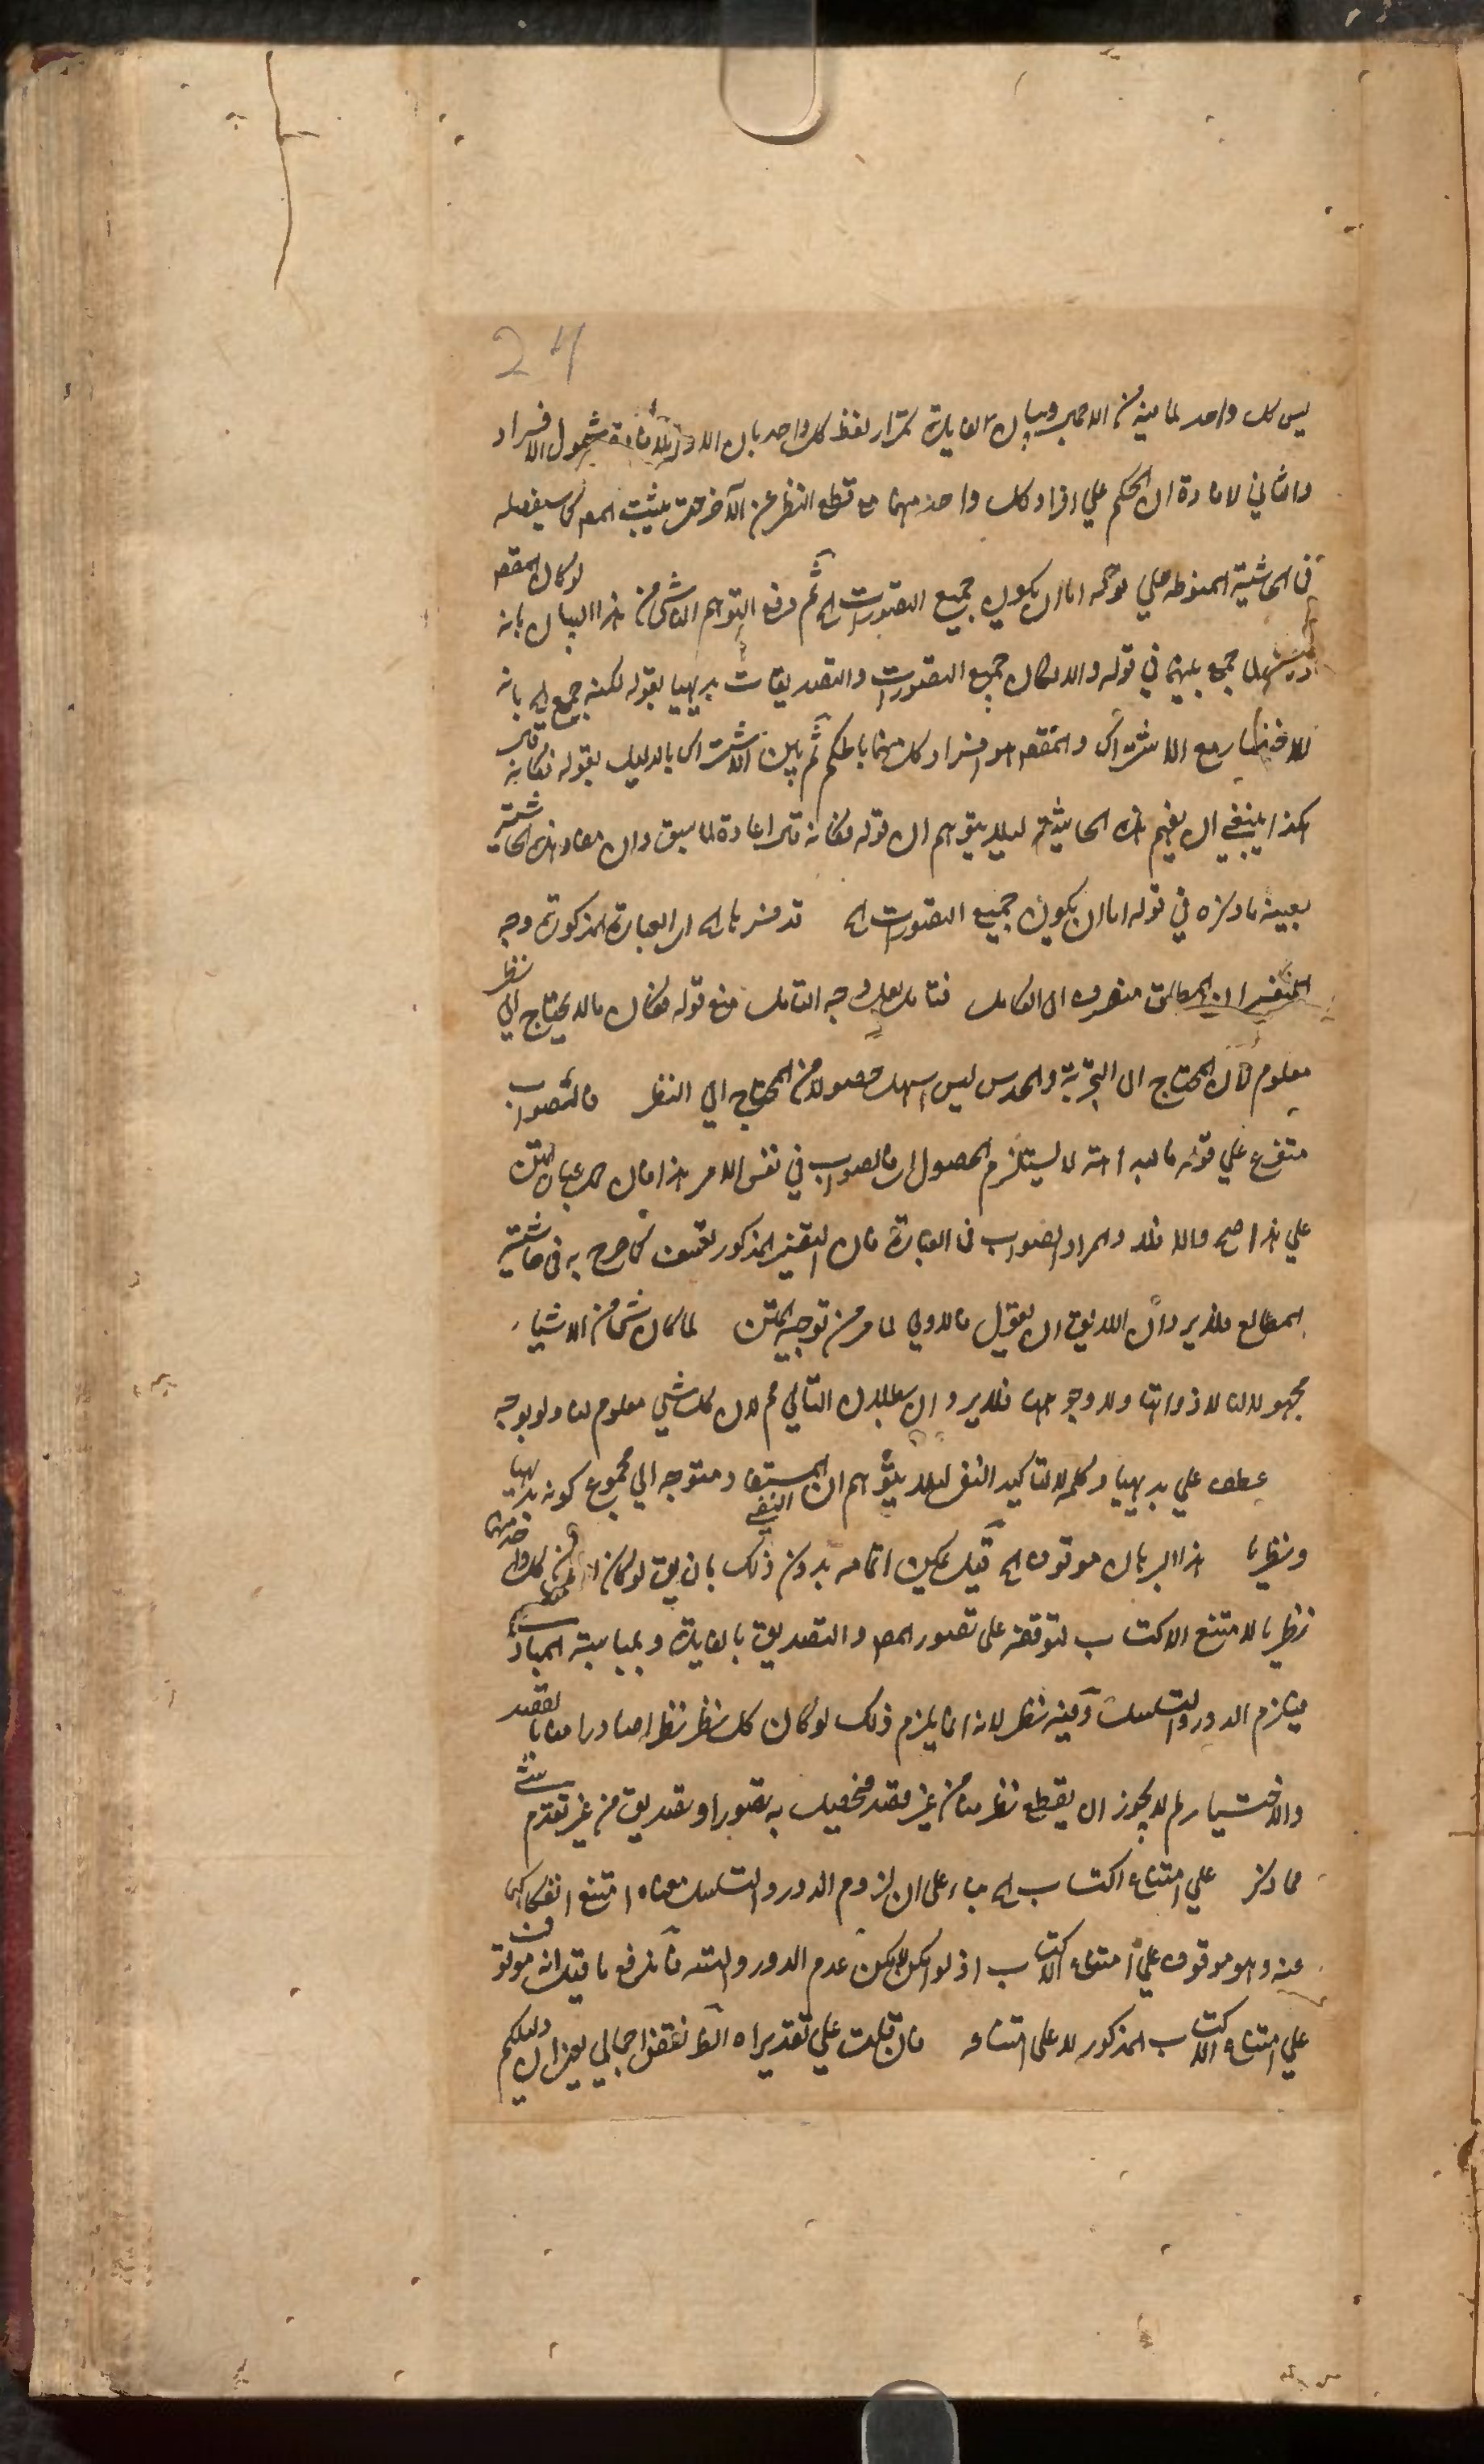 24
ليس كل واحد لما بينه من الاحمر وبيان الفايدة تكرار لفظ كل واحد بان الاول لافادة شمول الافراد
والثاني لافادة ان الحكم علي افراد كل واحد منهما مع قطع النظر عن الآخر حتي يثبت المدعى كما سيفصله
في الحاشية المنوطة علي قوله اما ان يكون جميع التصورات الخ ثم دفع التوهم الناشي من هذا البيان بانه لو كان المقصد
لما جمع بينهما في قوله والا لكان جميع التصورات والتصديقات بديهيا بقوله لكنه جمع الخ بانه
للاختصار مع الاشتراك والمقصد هو افراد كل منهما بالحكم ثم بين الاشتراك بالدليل بقوله فكانه قال
هكذا ينبغي ان يفهم هذه الحاشية ليلا يتوهم ان قوله فكانه قال اعادة لما سبق وان مفاد هذه الحاشية
بعينه ما ذكره في قوله اما ان يكون جميع التصورات الخ قد فسرنا الخ العبارة المذكورة وجه
التفسير ان المطلق منصرف الى الكامل فتامل لعل وجه التامل منع قوله فكان ما لا يحتاج الي نظر
معلوم فان المحتاج الى التجربة والحدس ليس اسهل حصولا من المحتاج الي النظر فالصواب
متفرع علي قوله فالبداهة لا يستلزم الحصول اي فالصواب في نفس الامر هذا فان حمل عبارة المتن
علي هذا صح والا فلا والمراد الصواب في العبارة فان التفسير المذكور تعسف كما صرح به في حاشية
المطالع فلا يرد ان اللايق ان يقول فالاولي لما مر من توجيه المتن لما كان شيئ من الاشياء
مجهولا لنا لا ذواتها ولا وجوهها فلا يرد ان بطلان التالي مم لان كل شيئ معلوم لنا ولو بوجه
عطف علي بديهيا وكلمة لا لتاكيد النفي ليلا يتوهم ان النفي المستفاد متوجه الي مجموع كونه بديهيا
ونظريا هذا البرهان موقوف الخ قيل يمكن اتمامه بدون ذلك بان يق لو كان كل واحد منهما
نظريا لامتنع الاكتساب لتوقفه على تصور المط والتصديق بالفايدة وبمناسبة المبادي
فيلزم الدور والتسلسل وفيه نظر لانه انما يلزم ذلك لو كان كل نظر نظرا صادرا منا بالقصد
والاختيار لم لا يجوز ان يقطع نظر منا من غير قصد فيحصل به تصور او تصديق من غير تقدم شيئ
مما ذكر علي امتناع اكتساب الخ بناء على ان لزوم الدور والتسلسل معناه امتنع انفكاكهما
عنه وهو موقوف علي امتناع الاكتساب اذ لو امكن لامكن عدم الدور والتسه فاندفع ما قيل انه موقوف
علي امتناع الاكتساب المذكور لا على امتناعه فان قلت علي تقديراه الظ نقض اجمالي يعني ان دليلكم